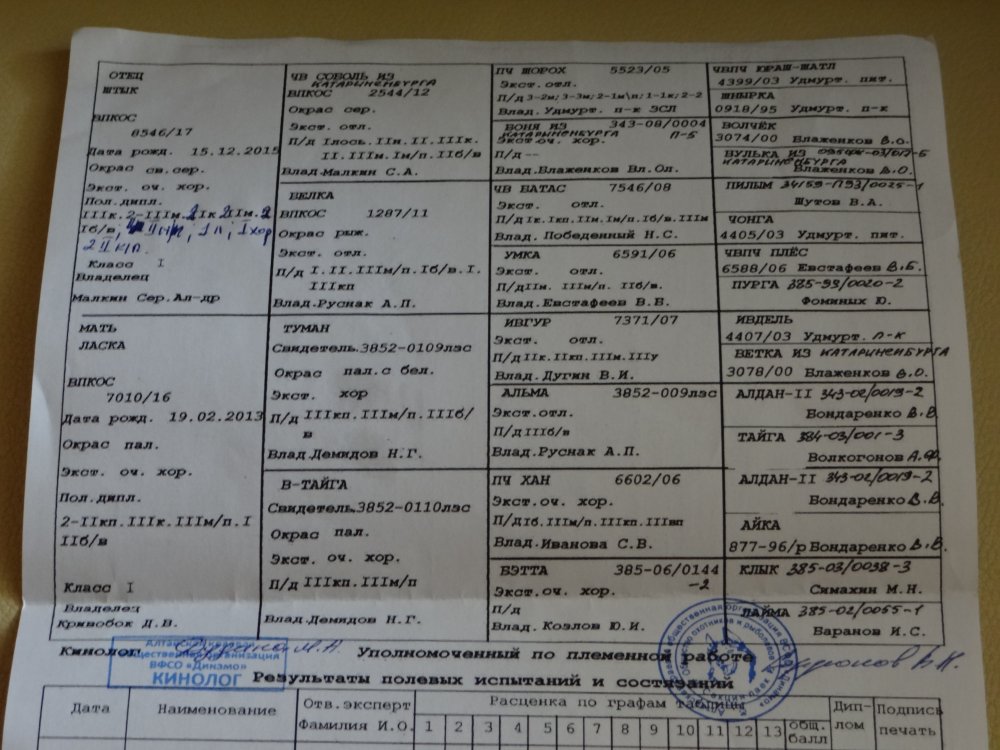 ОТЕЦ
ШТЫК
ВПКОС
8546/17
Дата рожд. 15.12.2015
Окрас св.сер.
Экст. оч. хор.
Пол.дипл.
IIIк.2-IIIм.2Iк2IIм.2
Iб/в, 1л, 1хор
2IIкп.
Класс I
Владелец
Малкин Сер.Ал-др
МАТЬ
ЛАСКА
ВПКОС
7010/16
Дата рожд. 19.02.2013
Окрас пал.
Экст. оч. хор.
Пол.дипл.
2-IIкп.IIIк.IIIм/п.I
IIб/в
Класс I
Владелец
Кривобок Д.В.
ЧВ СОБОЛЬ ИЗ
КАТАРИНЕНБУРГА
ВПКОС 2544/12
Окрас сер.
Экст. отл.
П/д Iлось.IIн.II.IIIк.
II.IIIм.Iм/п.IIб/в
Влад.Малкин С.А.
БЕЛКА
ВПКОС 1287/11
Окрас рыж.
Экст. отл.
П/д I.II.IIIм/п.Iб/в.I.
IIIкп
Влад.Руснак А.П.
ТУМАН
Свидетель.3852-0109лзс
Окрас пал.с бел.
Экст. хор
П/д IIIкп.IIIм/п.IIIб/
в
Влад.Демидов Н.Г.
В-ТАЙГА
Свидетель.3852-0110лзс
Окрас пал.
Экст. оч. хор.
П/д IIIкп.IIIм/п
Влад.Демидов Н.Г.
ПЧ ШОРОХ 5523/05
Экст.отл.
П/д 3-2м;3-3м;2-1м\п;1-1к;2-2
Влад.Удмурт. п-к ЗСЛ
ВОНЯ ИЗ 343-08/0004
КАТАРИНЕНБУРГА П-Б
Экст.оч. хор.
П/д --
Влад.Влаженков Вл.Ол.
ЧВ ВАТАС 7546/08
Экст. отл.
П/д Iк.Iкп.IIм.Iм/п.Iб/в.IIIм
Влад. Победенный Н.С.
УМКА 6591/06
Экст. отл.
П/дIIм. IIIм/п. IIб/в.
Влад.Евстафеев В.В.
ИВГУР 7371/07
Экст. отл.
П/дIIк.IIкп.IIIм.IIIу
Влад.Дугин В.И.
АЛЬМА 3852-009лзс
Экст.отл.
П/дIIIб/в
Влад.Руснак А.П.
ПЧ ХАН 6602/06
Экст.оч. хор.
П/дIб.IIIм/п.IIIкп.IIIвп
Влад.Иванова С.В.
БЭТТА 385-06/0144
-2
Экст.оч. хор.
П/д
Влад.Козлов Ю.И.
ЧВПЧ ЮРАШ-ШАТЛ
4399/03 Удмурт. пит.
ШНЫРКА
0918/95 Удмурт. п-к
ВОЛЧЁК
3074/00 Влаженков В.О.
ВУЛЬКА ИЗ
КАТАРИНЕНБУРГА
Влаженков В.О.
ПИЛЫМ 34159-П93/0025-1
Шутов В.А.
ЧОНГА
4405/03 Удмурт. пит.
ЧВПЧ ПЛЁС
6588/06 Евстафеев В.Б.
ПУРГА 385-93/0020-2
Фоминых Ю.
ИВДЕЛЬ
4407/03 Удмурт. п-к
ВЕТКА ИЗ КАТАРИНЕНБУРГА
3078/00 Влаженков В.О.
АЛДАН-II 343-02/0019-2
Бондаренко В.В
ТАЙГА 384-03/001-3
Волкогонов А.Ф.
АЛДАН-II 343-02/0019-2
Бондаренко В.В.
АЙКА
877-96/р Бондаренко В.В.
КЛЫК 385-03/0038-3
Симахин М.Н.
ЛАЙМА 385-02/0055-1
Баранов И.С.
Кинолог
Уполномоченный по племенной работе
Алтайская краевая
общественная организация
ВФСО «Динамо»
КИНОЛОГ
Результаты полевых испытаний и состязаний
Дата
Наименование
Отв.эксперт
Фамилия И.О.
Расценка по графам таблицы
1 2 3 4 5 6 7 8 9 10 11 12 13 общ.
балл
Дип-
лом
Подпись
печать